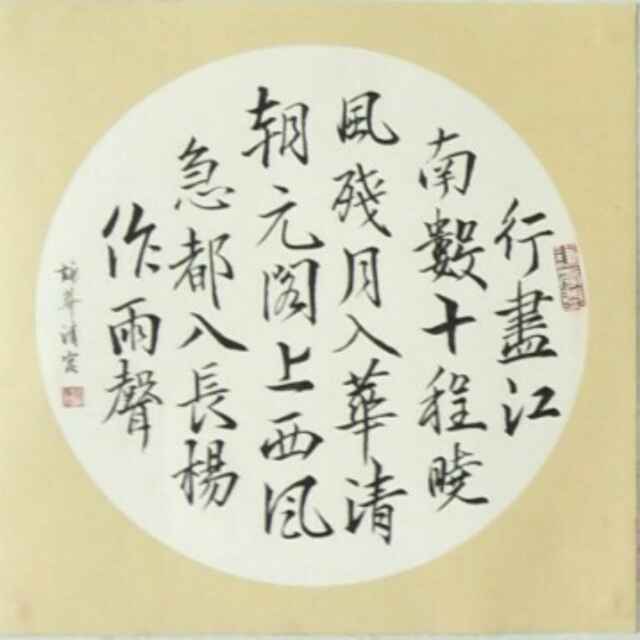 行盡江
南數十程曉
風殘月入華清
朝元閣上西風
急都入長楊
作雨聲